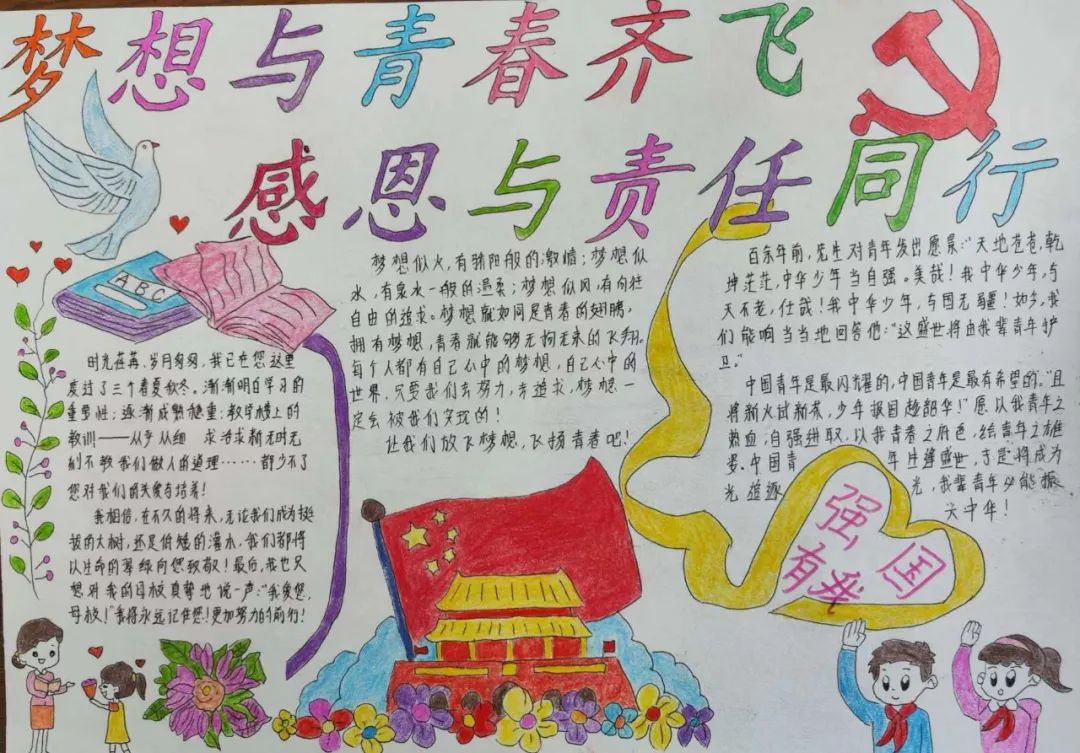 梦想与青春齐飞
感恩与责任同行
ABC
时光荏苒，岁月匆匆，我已在您这里
度过了三个春夏秋冬。渐渐明白学习的
重要性；逐渐成熟稳重；教学楼上的
教训——从多从细 求活求新无时无
刻不教我们做人的道理……都少不了
您对我们的关爱与培养！
我相信，在不久的将来，无论我们成为挺
拔的大树，还是低矮的灌木，我们都将
以生命的翠绿向您致敬！最后，我也只
想对我的母校真挚地说一声：“我爱您，
母校！”我将永远记住您！更加努力的前行！
梦想似火，有骄阳般的激情；梦想似
水，有泉水一般的温柔；梦想似风，有向往
自由的追求。梦想就如同是青春的翅膀，
拥有梦想，青春就能够无拘无束的飞翔。
每个人都有自己心中的梦想，自己心中的
世界，只要我们去努力，去追求，梦想一
定会被我们实现的！
让我们放飞梦想，飞扬青春吧！
百余年前，先生对青年发出愿景：“天地苍苍，乾
坤茫茫，中华少年当自强。美哉！我中华少年，与
天不老，壮哉！我中华少年，与国无疆！如今，我
们能响当当地回答他：“这盛世将由我辈青年护
卫。”
中国青年是最闪光耀的，中国青年是最有希望的。“且
将新火试新茶，少年报国趁韶华！”愿以我青年之
热血，自强进取，以我青春之底色，绘青年之雄
姿。中国青 年生逢盛世，于是将成为
光 追逐 光，我辈青年必能振
大中华！
强国
有我